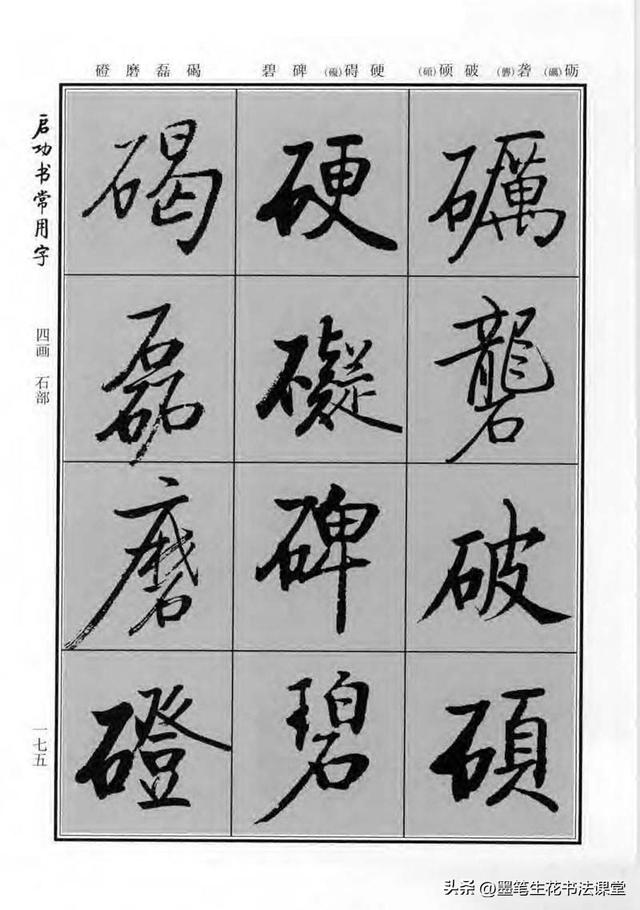 砺(礪) 砻(礱) 破 硕(碩)
硬 碍(礙) 碑 碧
碣 磊 磨 磴
礪
礱
破
碩
硬
礙
碑
碧
碣
磊
磨
磴
启功书常用字
四画 石部
一七五
头条 @墨笔生花书法课堂